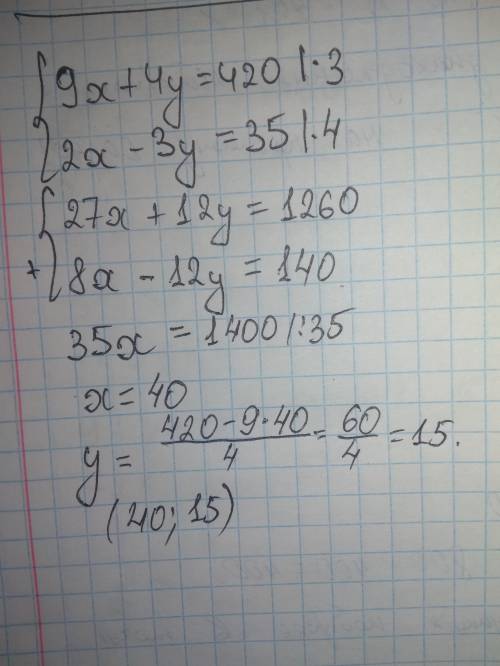 9x + 4y = 420 |·3
2x - 3y = 35 |·4
27x + 12y = 1260
+ 8x - 12y = 140
35x = 1400 |:35
x = 40
y = (420 - 9·40)/4 = 60/4 = 15.
(40; 15)